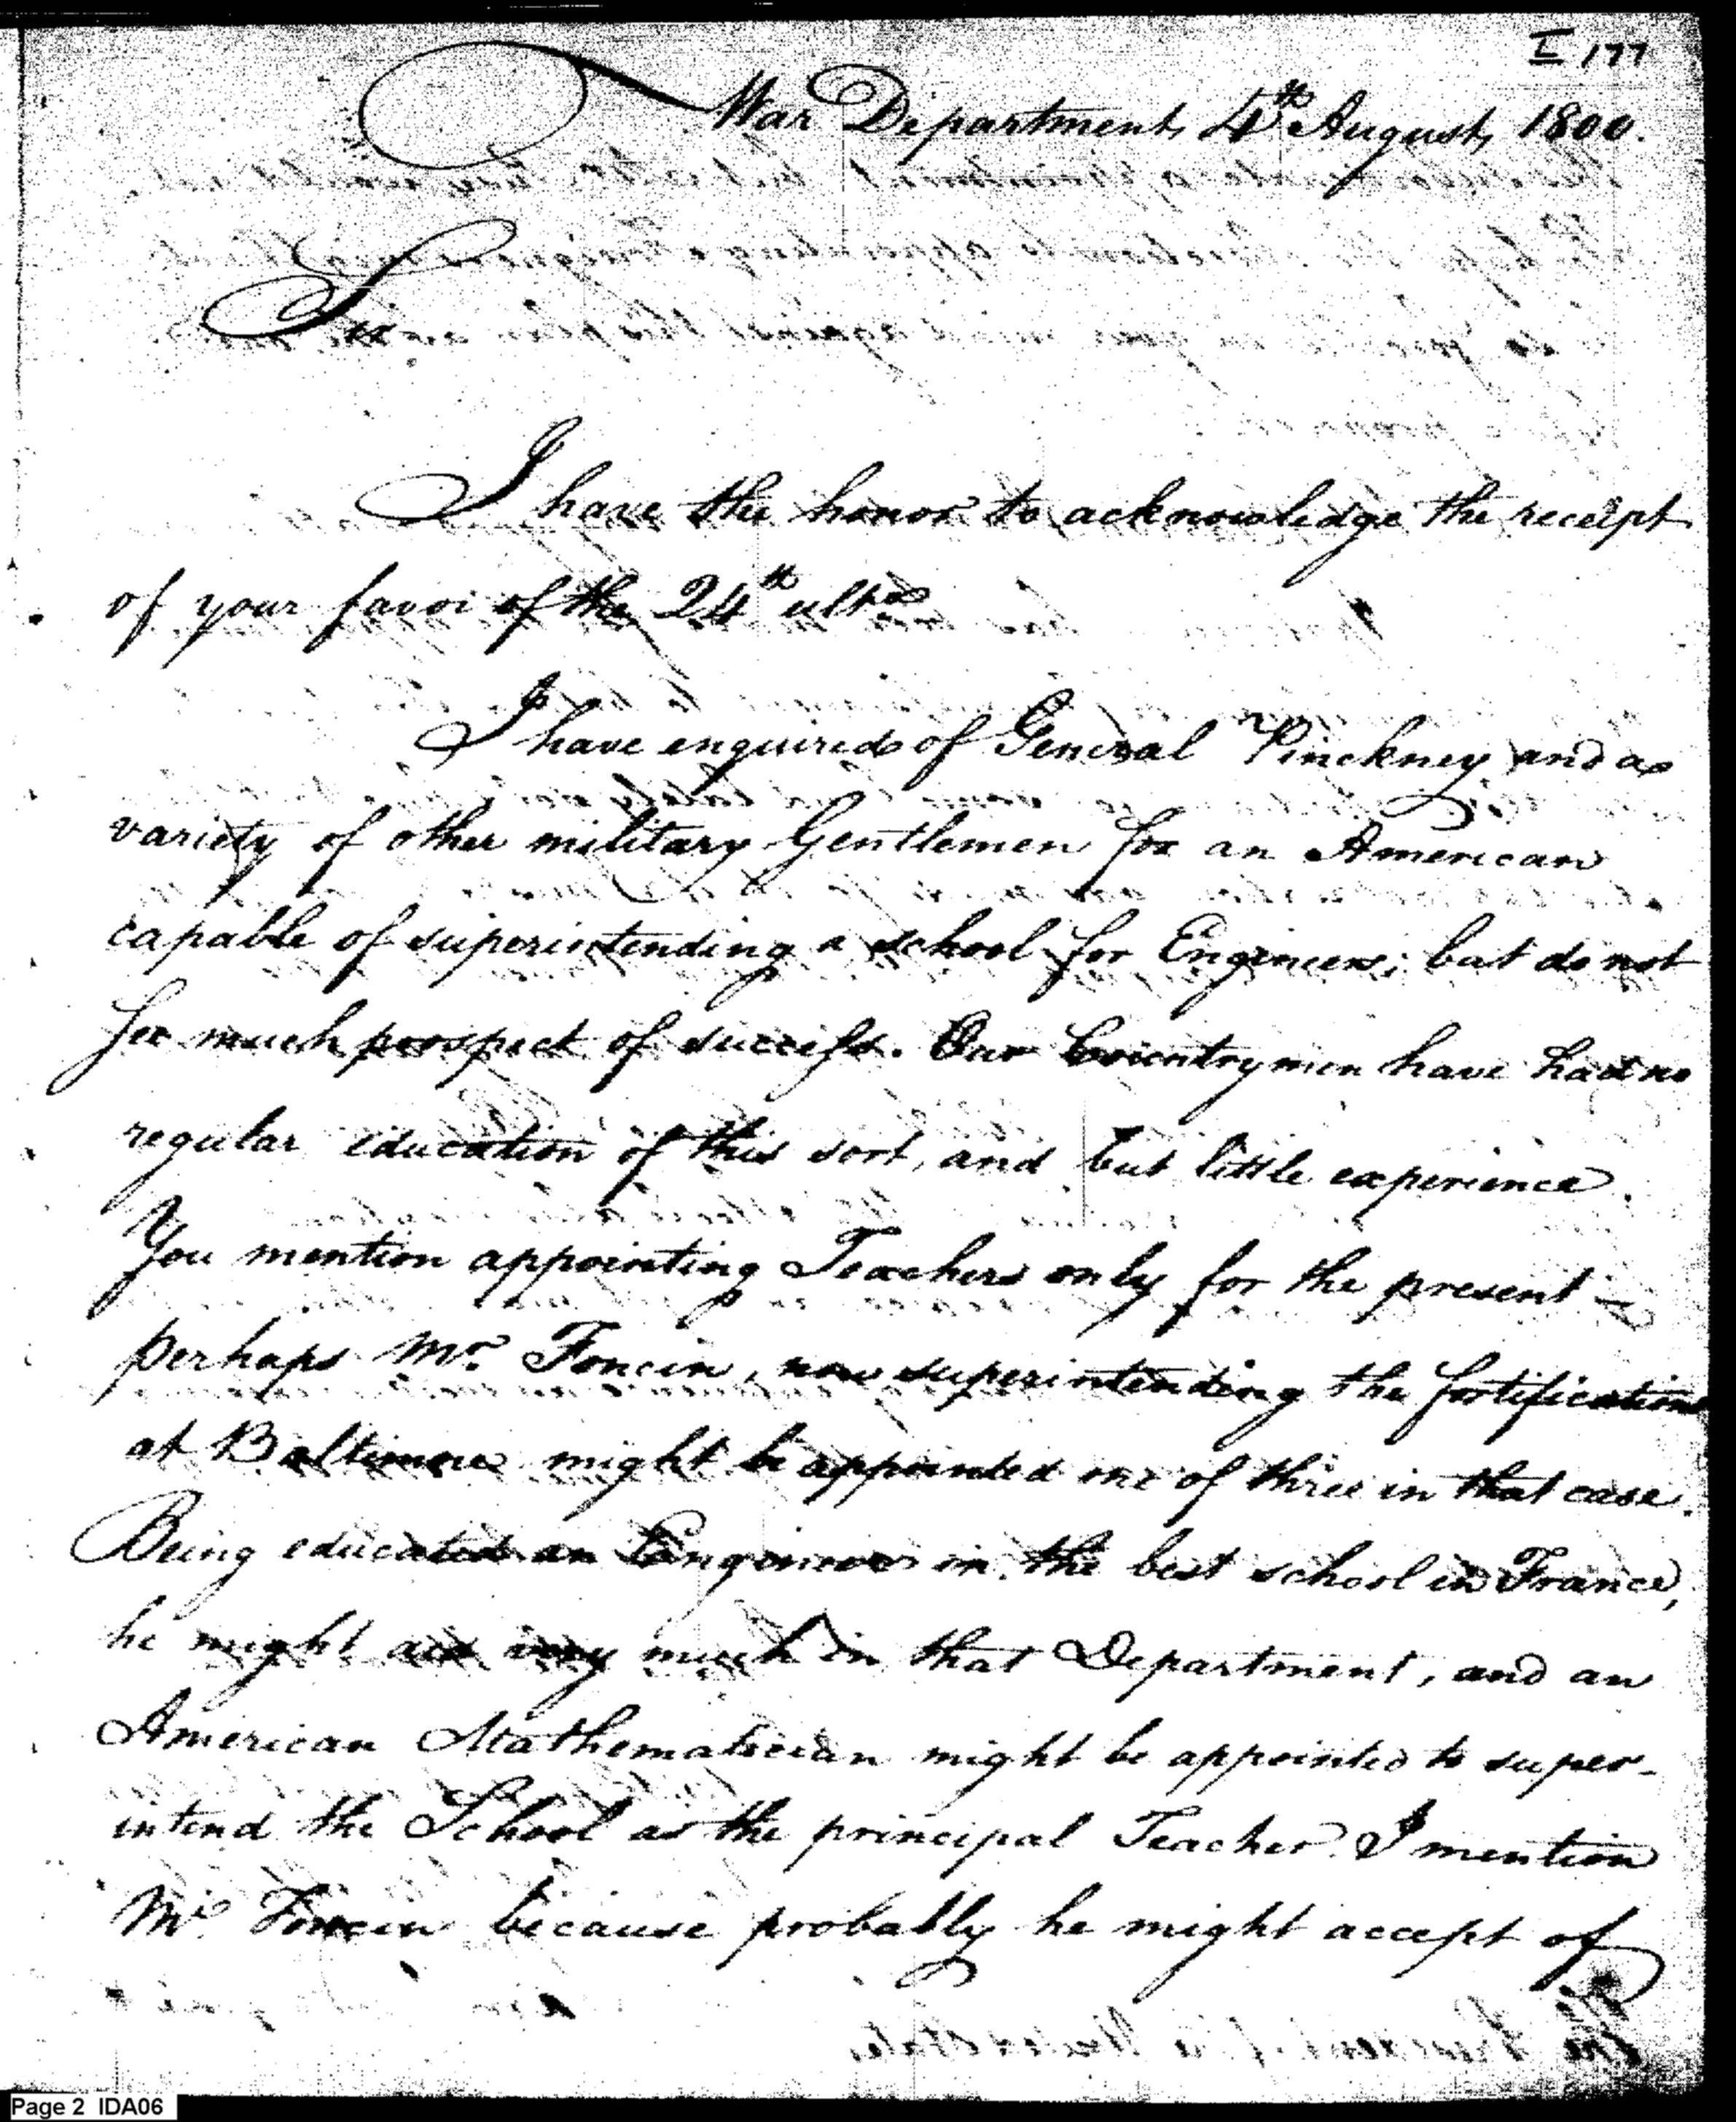 I 177
War Department, 4th August, 1800.
Sir
I have the honor to acknowledge the receipt
of your favor of the 24th ulto
I have enquired of General Pinckney and a
variety of other military Gentlemen for an American
capable of superintending a school for Engineers; but do not
see much prospect of success. Our Countrymen have had no
regular education of this sort, and but little experience.
You mention appointing Teachers only for the present —
perhaps Mr. Foncin, now superintending the fortifications
at Baltimore might be appointed one of three in that case.
Being educated an Engineer in the best school in France,
he might aid very much in that Department, and an
American Mathematician might be appointed to super-
intend the School as the principal Teacher. I mention
Mr. Foncin because probably he might accept of
The President of the United States.
Page 2 IDA06